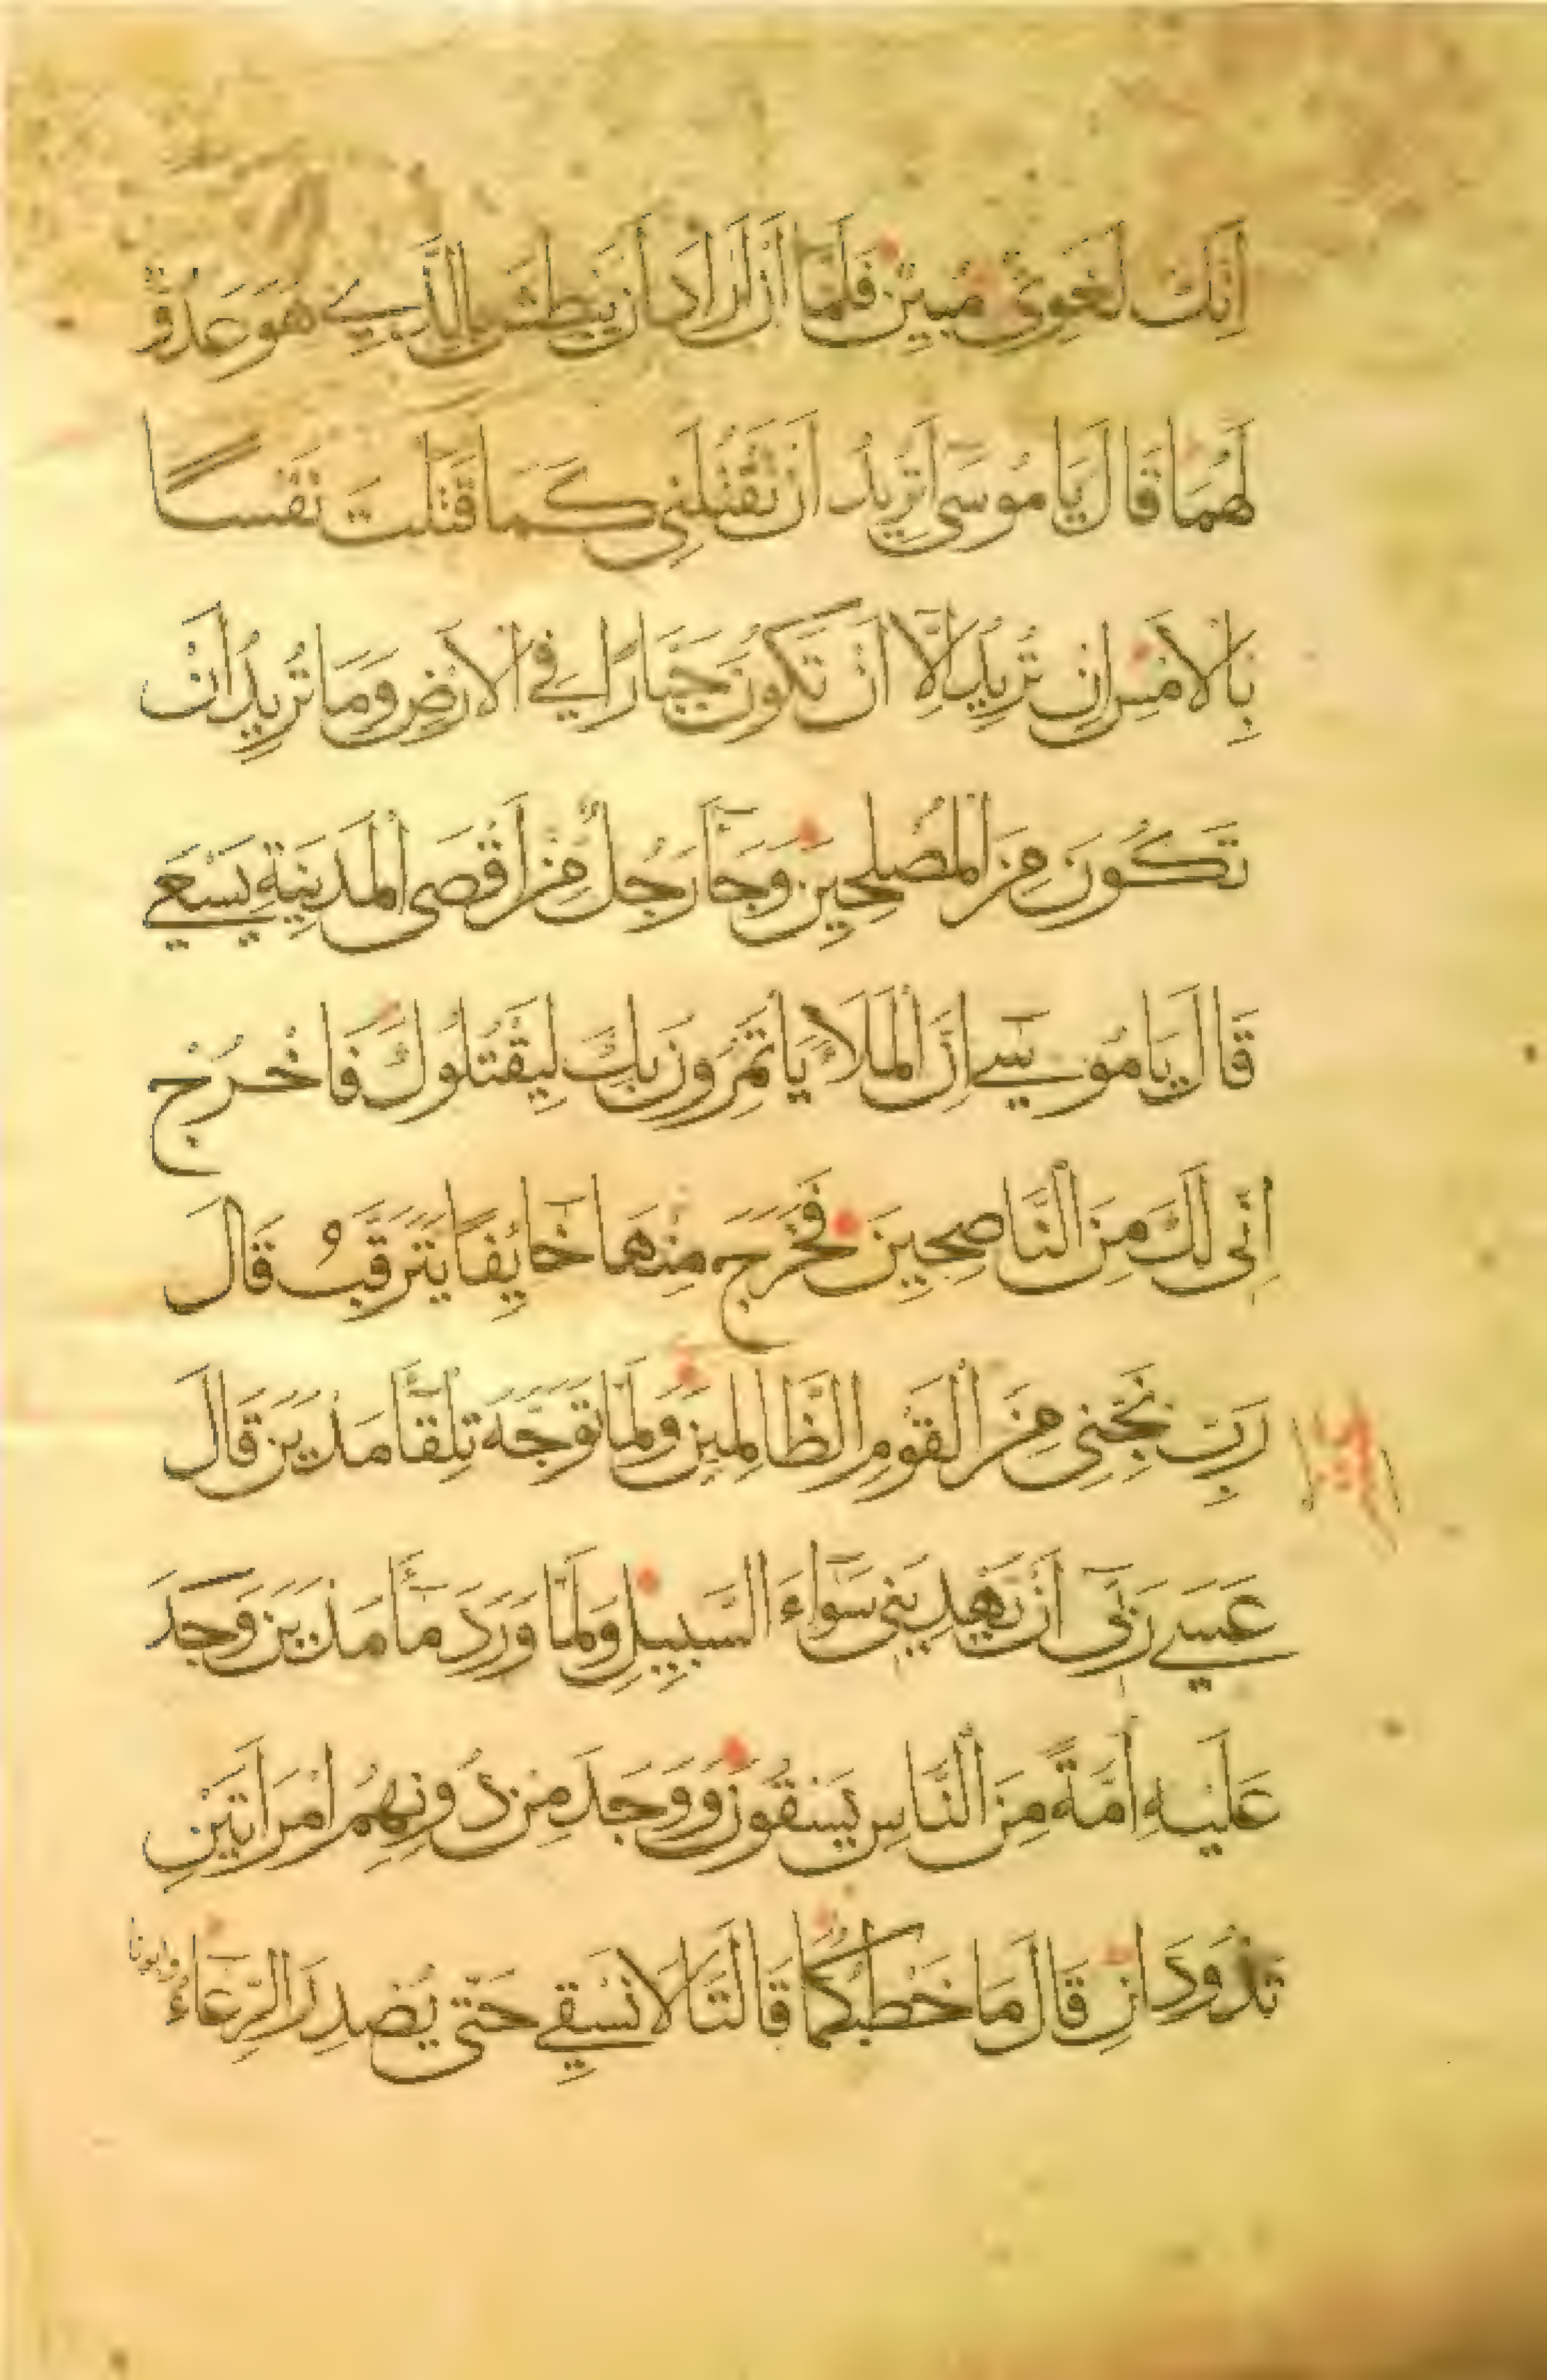 اِنَّكَ لَغَوِیٌّ مُبِينٌ فَلَمَّا اَنْ اَرَادَ اَنْ يَبْطِشَ بِالَّذِي هُوَ عَدُوٌّ
لَهُمَا قَالَ يَا مُوسَى اَتُرِيدُ اَنْ تَقْتُلَنِی كَمَا قَتَلْتَ نَفْسًا
بِالْاَمْسِ اِنْ تُرِيدُ اِلَّا اَنْ تَكُونَ جَبَّارًا فِي الْاَرْضِ وَمَا تُرِيدُ اَنْ
تَكُونَ مِنَ الْمُصْلِحِينَ وَجَآءَ رَجُلٌ مِنْ اَقْصَى الْمَدِينَةِ يَسْعَي
قَالَ يَا مُوسَي اِنَّ الْمَلَاَ يَاْتَمِرُونَ بِكَ لِيَقْتُلُوكَ فَاخْرُجْ
اِنِّی لَكَ مِنَ النَّاصِحِينَ فَخَرَجَ مِنْهَا خَآئِفًا يَتَرَقَّبُ قَالَ
رَبِّ نَجِّنِی مِنَ الْقَوْمِ الظَّالِمِينَ وَلَمَّا تَوَجَّهَ تِلْقَآءَ مَدْيَنَ قَالَ
عَسَي رَبِّی اَنْ يَهْدِيَنِی سَوَآءَ السَّبِيلِ وَلَمَّا وَرَدَ مَآءَ مَدْيَنَ وَجَدَ
عَلَيْهِ اُمَّةً مِنَ النَّاسِ يَسْقُونَ وَوَجَدَ مِنْ دُونِهِمُ امْرَاَتَيْنِ
تَذُودَانِ قَالَ مَا خَطْبُكُمَا قَالَتَا لَا نَسْقِي حَتَّى يُصْدِرَ الرِّعَآءُ
وابونا